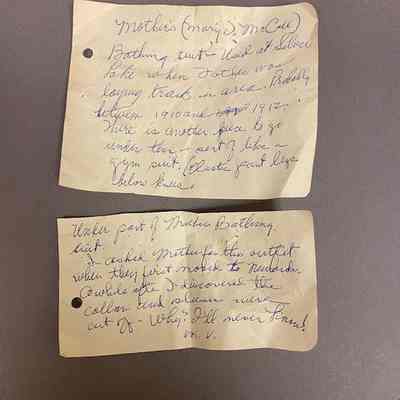 Mother's (Mary J. McCall)
Bathing suit - Used at Silver
Lake when Father was
laying track in area. Probably
between 1910 and 1912.
There is another piece to go
under this - sort of like a
gym suit. (Elastic part legs
below knees.
Under part of Mother's Bathing
suit.
I asked Mother for this outfit
when they first moved to
after I discovered the
collar and sleeves were
cut off - Why? I'll never know!
M. V.